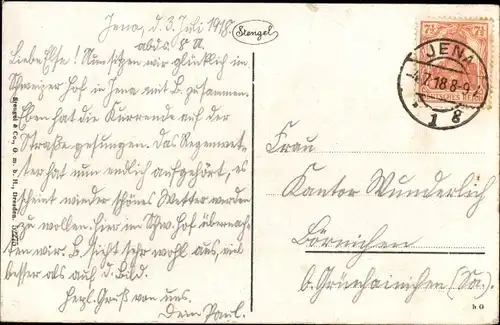 Jena, d. 3. Juli 1918.
abds. 8 U.
Stengel
Liebe Else! Nun sitzen wir glücklich im
Schweizer Hof in Jena mit B. zusammen.
Eben hat die Kurrende auf der
Straße gesungen. Das Regenwet-
ter hat nun endlich aufgehört, es
scheint wieder schönes Wetter werden
zu wollen. Hier im Schw. Hof übernach-
ten wir. B. sieht sehr wohl aus, viel
besser als auf d. Bild.
Herzl. Gruß von uns.
Dein Paul.
Stengel & Co., G. m. b. H., Dresden.
JENA
4.7.18 8-9
1 g
7½ 7½
DEUTSCHES REICH
Frau
Kantor Wunderlich
Börnichen
b. Grünhainichen (Sa.)